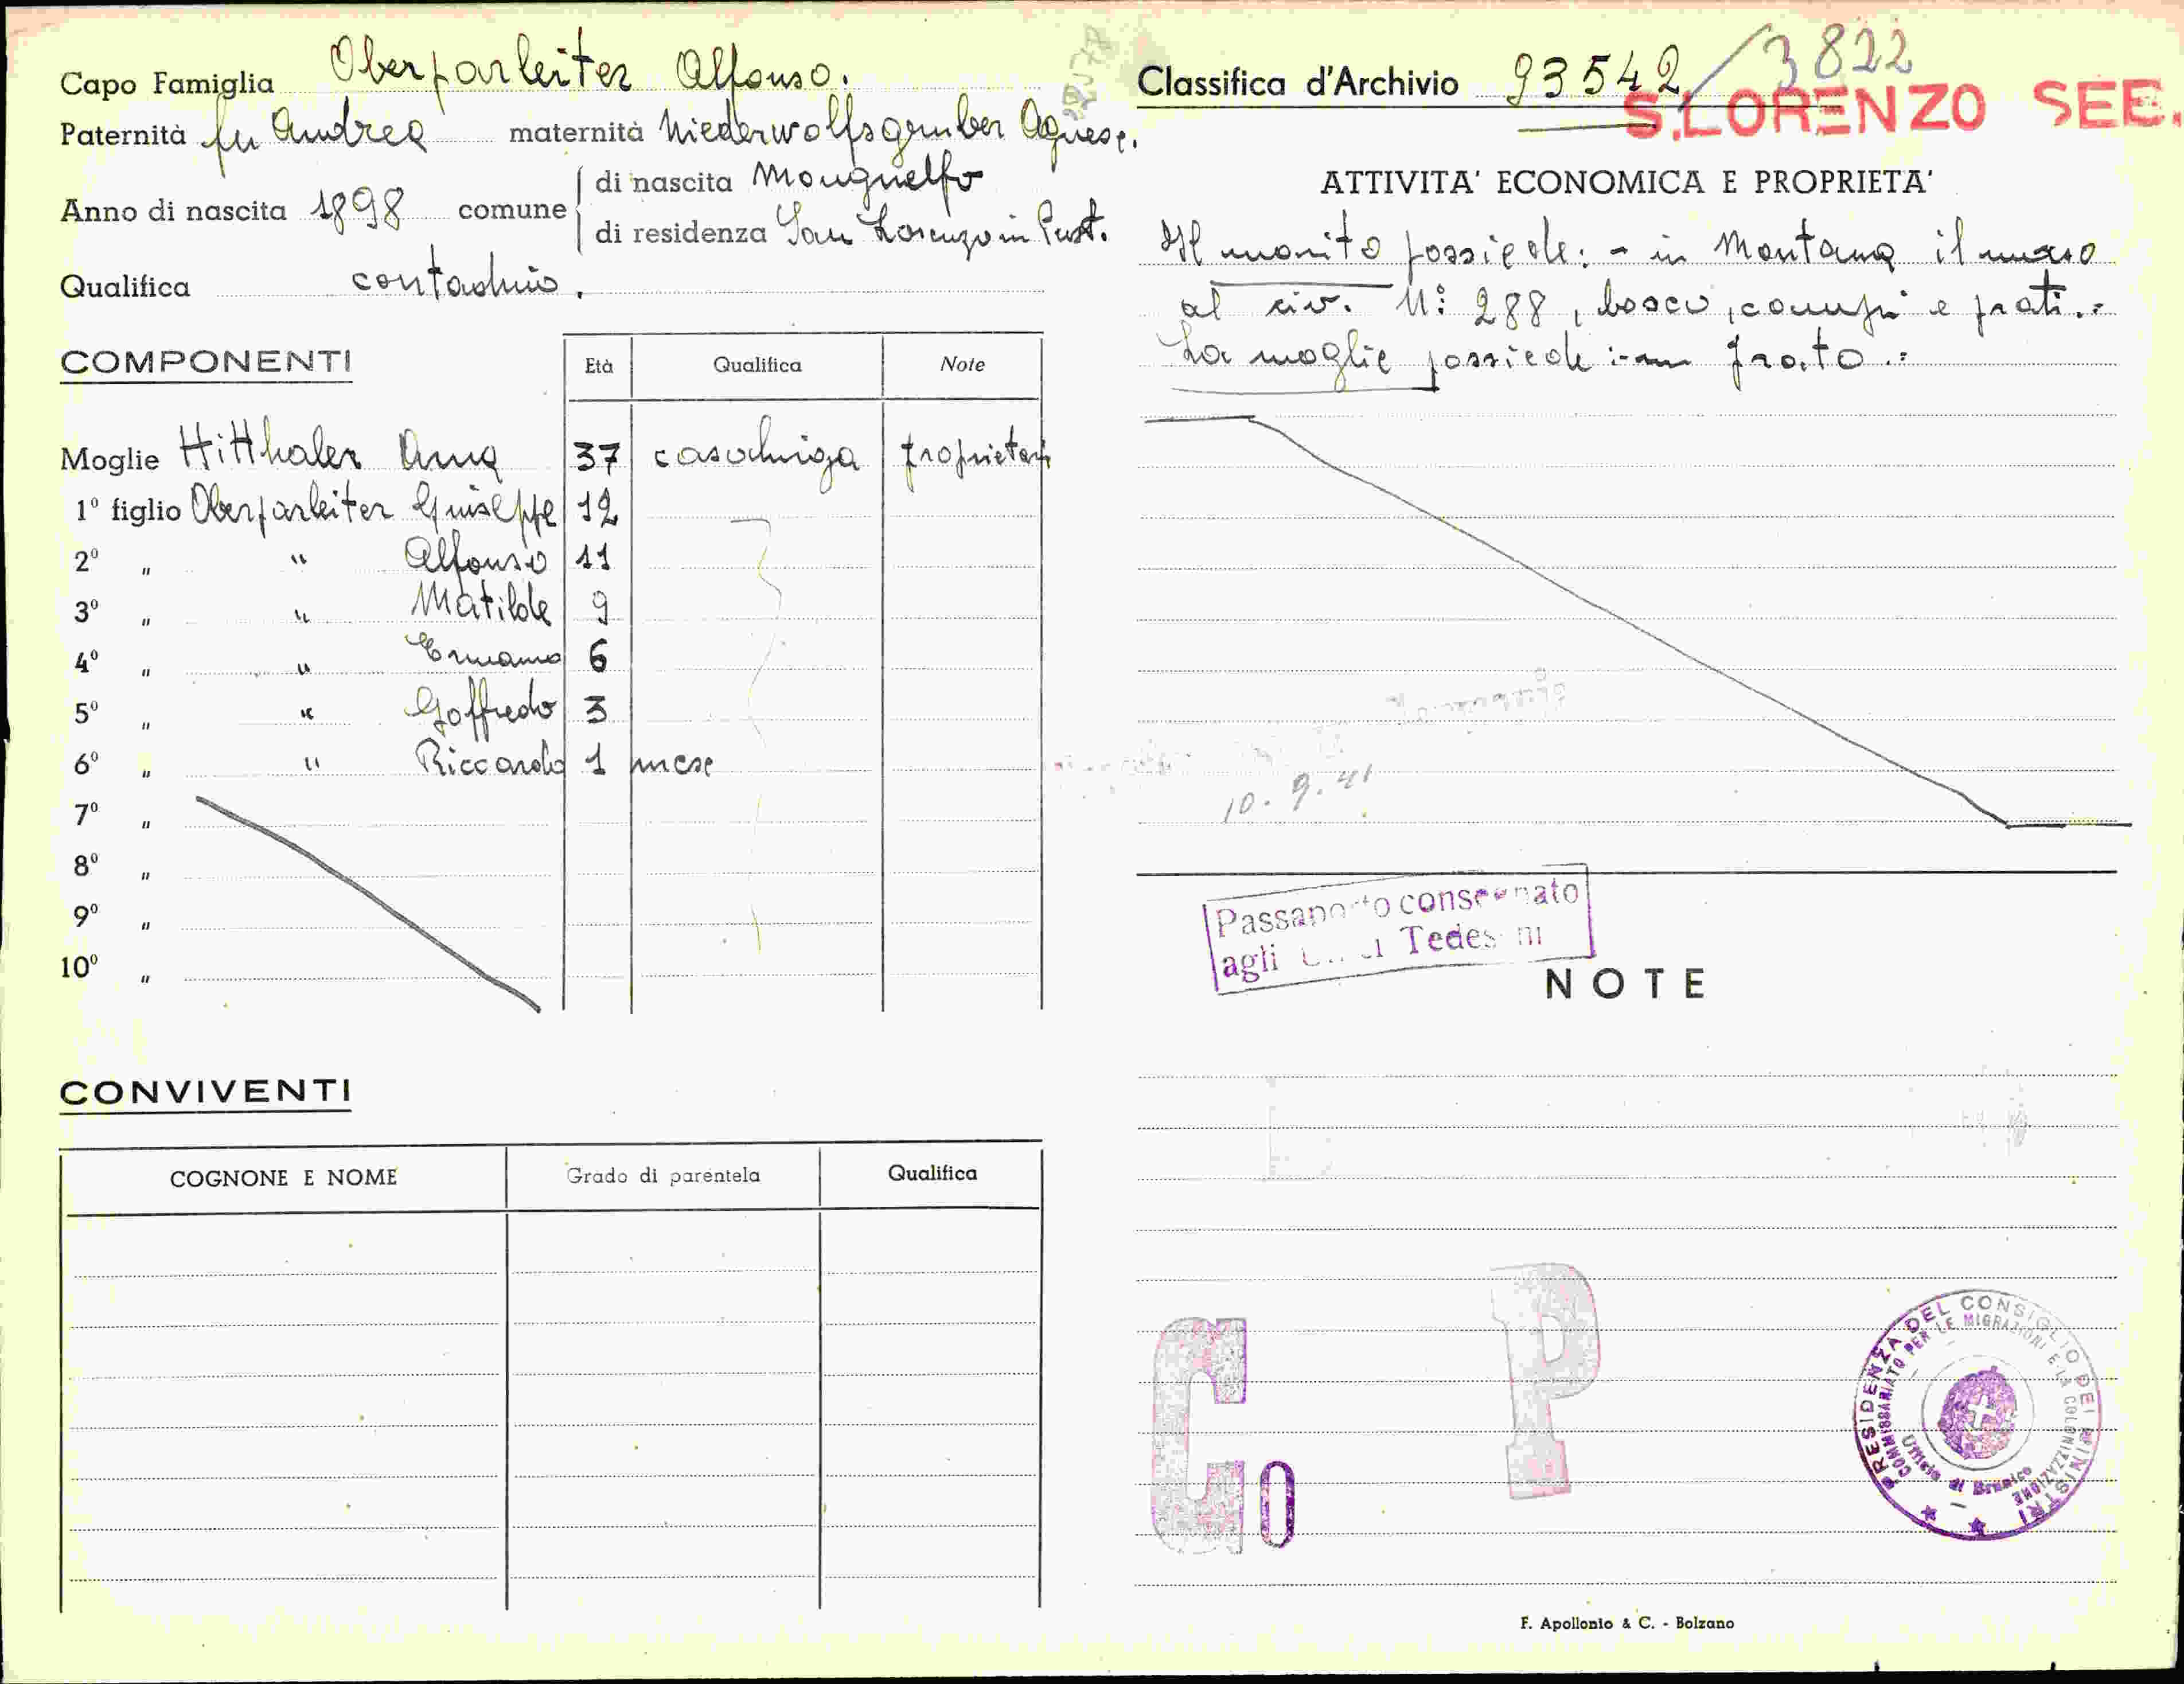 Capo Famiglia Oberparleiter Alfonso.
Paternità fu Andrea maternità Niederwolfsgruber Agnese.
Anno di nascita 1898 comune di nascita Monguelfo
di residenza San Lorenzo in Pust.
Qualifica contadino.
COMPONENTI Età Qualifica Note
Moglie Hitthaler Anna 37 casalinga proprietari
1º figlio Oberparleiter Giuseppe 12
2º " " Alfonso 11
3º " " Matilde 9
4º " " Ermanno 6
5º " " Goffredo 3
6º " " Riccardo 1 mese
7º "
8º "
9º "
10º "
CONVIVENTI
COGNONE E NOME Grado di parentela Qualifica
Classifica d'Archivio 93542/3822
S. LORENZO SEB.
ATTIVITA' ECONOMICA E PROPRIETA'
Il marito possiede: - in Mantana il maso
al civ. N: 288, bosco, campi e prati.=
La moglie possiede :- un prato.=
10.9.41
Passaporto consegnato
agli Tedeschi
NOTE
G P
O
PRESIDENZA DEL CONSIGLIO DEI MINISTRI
COMMISSARIATO PER LE MIGRAZIONI E LA COLONIZZAZIONE
Ufficio di Brunico
F. Apollonio & C. - Bolzano